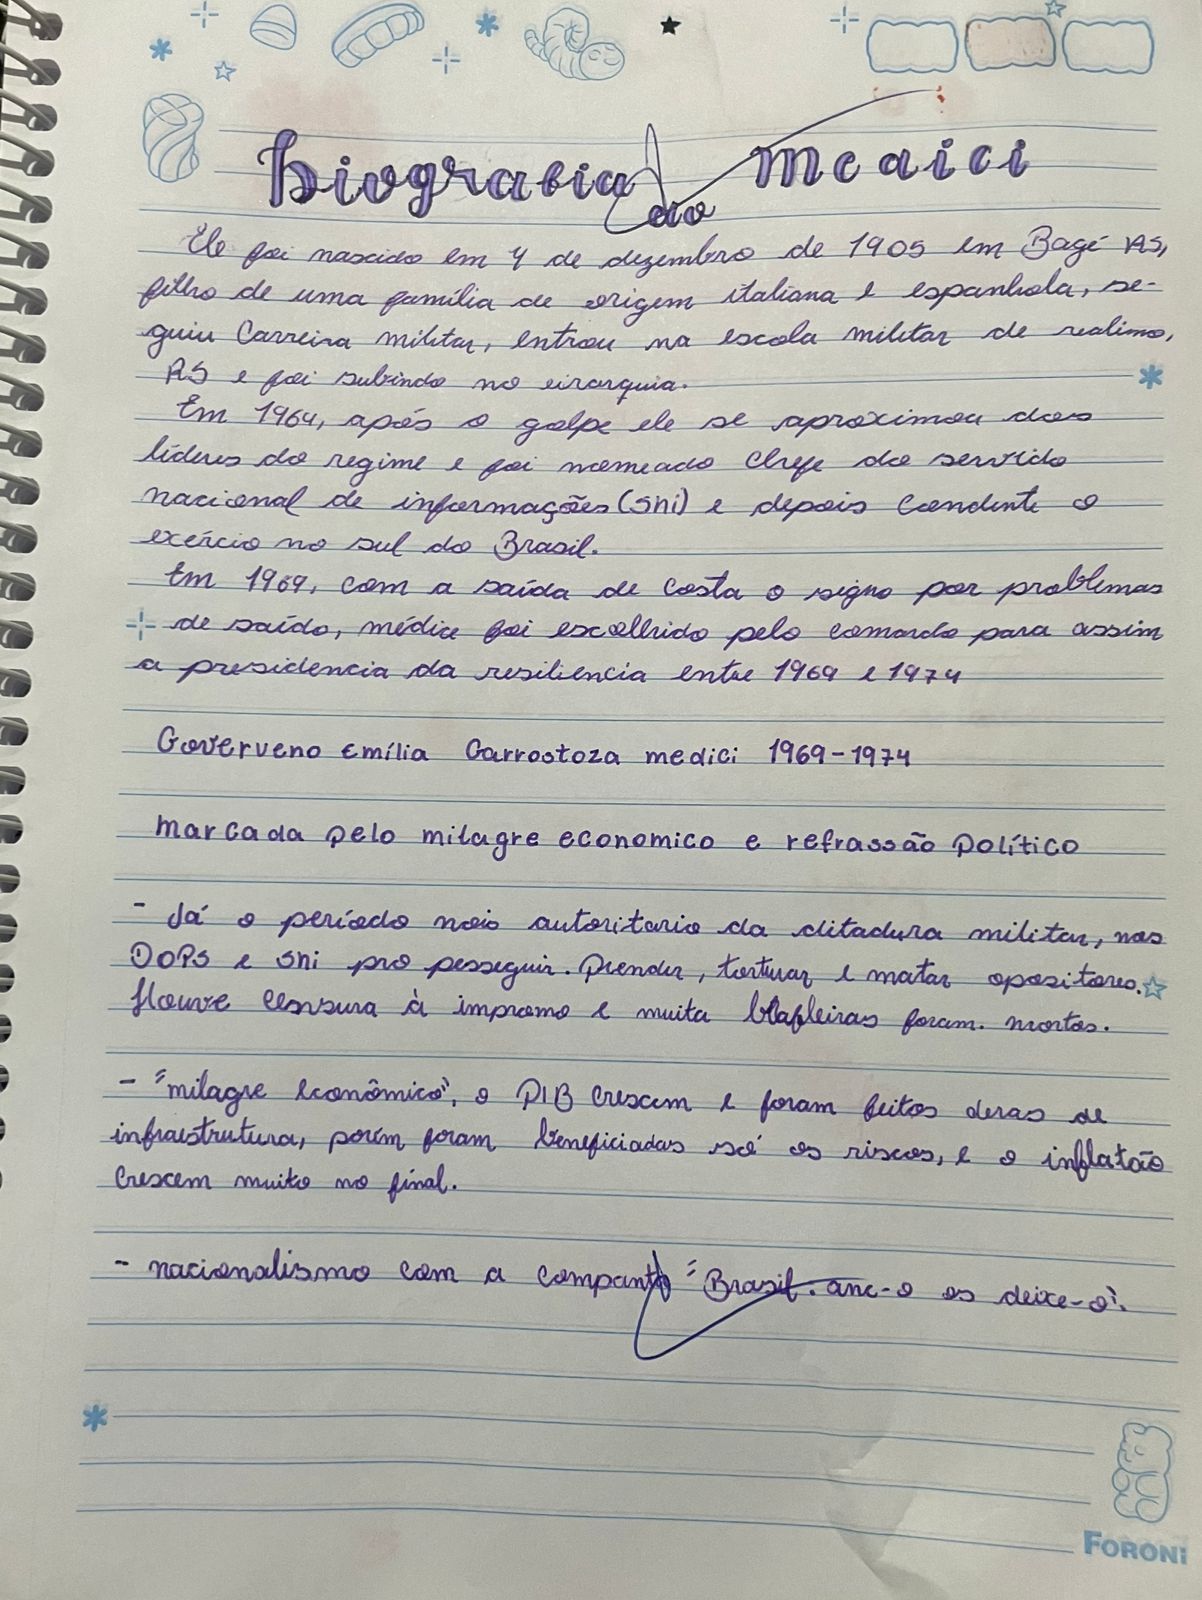 biografia do medici
Ele foi nascido em 4 de dezembro de 1905 em Bagé RS,
filho de uma família de origem italiana e espanhola, se-
guiu Carreira militar, entrou na escola militar de realimo,
RS e foi subindo no eirarquia.
Em 1964, após o golpe ele se aproximou dos
líderes do regime e foi nomeado chefe do servido
nacional de informações (sni) e depois condente o
exércio no sul do Brasil.
Em 1969, com a saída de costa o signo por problemas
de saído, médice foi escolhido pelo comardo para assim
a presidencia da resiliencia entre 1969 e 1974
Goverueno Emília Garrostoza medici 1969-1974
marcada pelo milagre economico e refrassão político
- Já o período nois autoritario da ditadura militar, nos
DOPS e sni pro pesseguir. Prender, torturar e matar opositores.
Houve censura à impromo e muita foram. mortos.
- "milagre econômico", o PIB crescem e foram feitos deras de
infraestrutura, porém foram beneficiadas só os riscos, e o inflatão
Crescem muito no final.
- nacionalismo com a companto "Brasil. anc-o os deixe-o".
FORONI